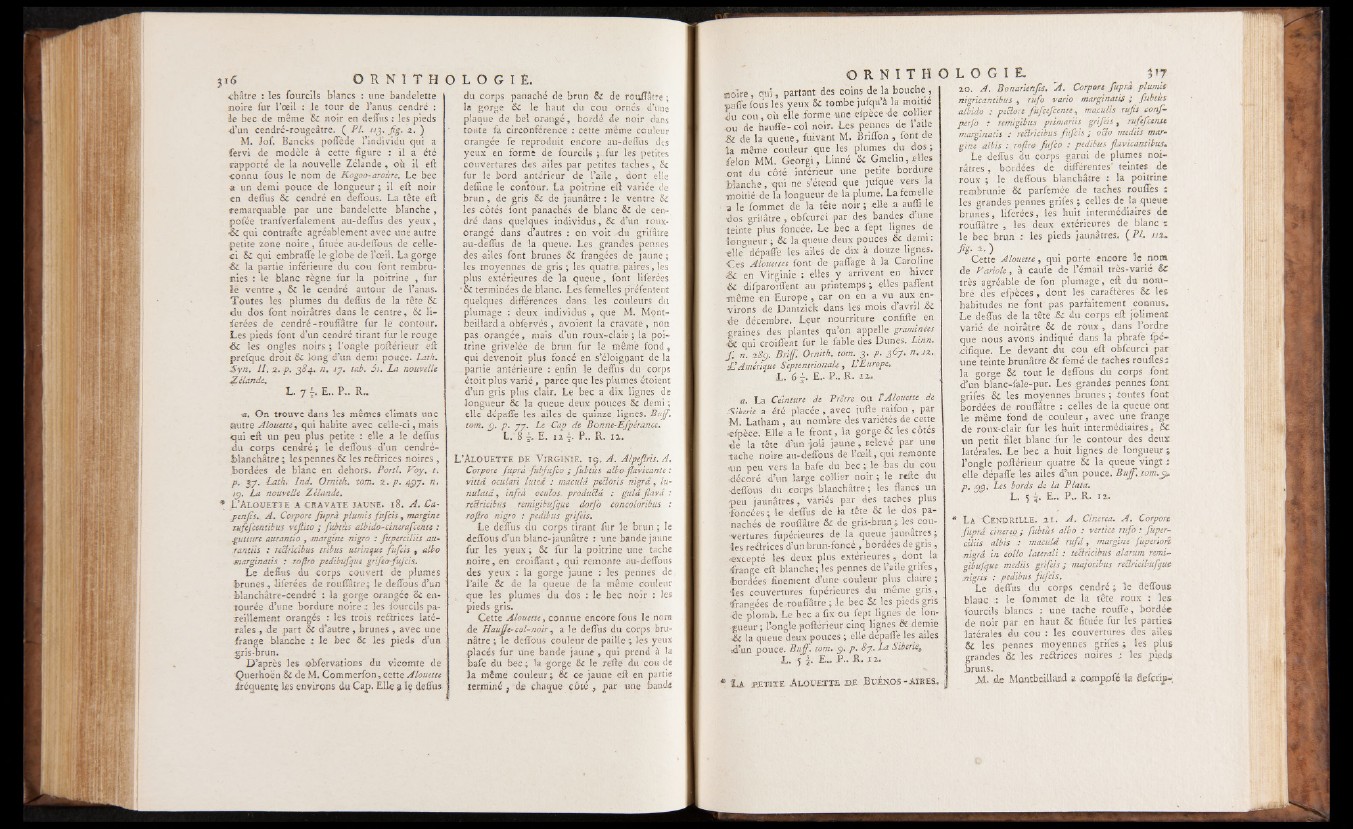 316 ORNITHOLOGIE.
châtre : les ſourcils blancs : une bandelette
noire ſur l'œil : le tour de l'anus cendré :
le bec de même & noir en deſſus : les pieds
d'un cendré-rougeâtre. ( Pl. 113. fig. 2. )
M. Joſ. Bancks poſſède l'individu qui a
ſervi de modèle à cette figure : il a été
rapporté de la nouvelle Zélande, où il eſt
connu ſous le nom de Kogou-aroure. Le bec
a un demi pouce de longueur ; il eſt noir
en deſſus & cendré en deſſous. La tête eſt
remarquable par une bandelette blanche,
poſée tranſverſalement au-deſſus des yeux,
& qui contraſte agréablement avec une autre
petite zone noire, ſituée au-deſſous de celle-
ci & qui embraſſe le globe de l'œil. La gorge
& la partie inférieure du cou ſont rembru-
nies : le blanc règne ſur la poitrine, ſur
le ventre, & le cendré autour de l'anus.
Toutes les plumes du deſſus de la tête &
du dos ſont noirâtres dans le centre, & li-
ſerées de cendré-rouſſâtre ſur le contour.
Les pieds ſont d'un cendré tirant ſur le rouge
& les ongles noirs ; l'ongle poſtérieur eſt
preſque droit & long d'un demi pouce. Lath.
Syn. II. 2. p. 384. n. 17. tab. 51. La nouvelle
Zélande.
L. 7 ½. E.. P.. R..
a. On trouve dans les mêmes climats une
autre Alouette, qui habite avec celle-ci, mais
qui eſt un peu plus petite : elle a le deſſus
du corps cendré ; le deſſous d'un cendré-
blanchâtre ; les pennes & les rectrices noires,
bordées de blanc en dehors. Portl. Voy. t.
p. 37. Lath. Ind. Ornith. tom. 2. p. 497. n.
19. La nouvelle Zélande.
* L'ALOUETTE A CRAVATE JAUNE. 18. A. Ca-
penſis. A. Corpore ſuprà plumis fuſcis, margine
rufeſcentibus veſtito ; ſubtùs albido-cineraſcente :
guture aurantio, margine nigro : ſuperciliis au-
rantiis : rectricibus tribus utrinque fuſcis, albo
marginatis : roſtro pedibuſque griſeo-fuſcis.
Le deſſus du corps couvert de plumes
brunes, liſerées de rouſſâtre ; le deſſous d'un
blanchâtre-cendré : la gorge orangée & en-
tourée d'une bordure noire : les ſourcils pa-
reillement orangés : les trois rectrices laté-
rales, de part & d'autre, brunes, avec une
frange blanche : le bec & les pieds d'un
gris-brun.
D'après les obſervations du vicomte de
Querhoën & de M. Commerſon, cette Alouette
fréquente les environs du Cap. Elle a le deſſus
du corps panaché de brun & de rouſſâtre ;
la gorge & le haut du cou ornés d'une
plaque de bel orangé, bordé de noir dans
toute ſa circonférence : cette même couleur
orangée ſe reproduit encore au-deſſus des
yeux en forme de ſourcils ; ſur les petites
couvertures des ailes par petites taches, &
ſur le bord antérieur de l'aile, dont elle
deſſine le contour. La poitrine eſt variée de
brun, de gris & de jaunâtre : le ventre &
les côtés ſont panachés de blanc & de cen-
dré dans quelques individus, & d'un roux-
orangé dans d'autres : on voit du griſâtre
au-deſſus de la queue. Les grandes pennes
des ailes ſont brunes & frangées de jaune ;
les moyennes de gris ; les quatre paires, les
plus extérieures de la queue, ſont liſerées
& terminées de blanc. Les femelles préſentent
quelques différences dans les couleurs du
plumage : deux individus, que M. Mont-
beillard a obſervés, avoient la cravate, non
pas orangée, mais d'un roux-clair ; la poi-
trine grivelée de brun ſur le même fond,
qui devenoit plus foncé en s'éloignant de la
partie antérieure : enfin le deſſus du corps
étoit plus varié, parce que les plumes étoient
d'un gris plus clair. Le bec a dix lignes de
longueur & la queue deux pouces & demi ;
elle dépaſſe les ailes de quinze lignes. Buff.
tom. 9. p. 77. Le Cap de Bonne-Eſpérance.
L. 8 ½. E. 12 ½. P.. R. 12.
L'ALOUETTE DE VIRGINIE. 19. A. Alpeſtris. A.
Corpore ſuprà ſubfuſco ; ſubtùs albo-flavicante :
vittâ oculari luteâ : maculâ pectoris nigrâ, lu-
nulatâ, infrà oculos productâ : gulâ flavâ :
rectricibus remigibuſque dorſo concoloribus :
roſtro nigro : pedibus griſeis.
Le deſſus du corps tirant ſur le brun ; le
deſſous d'un blanc-jaunâtre : une bande jaune
ſur les yeux ; & ſur la poitrine une tache
noire, en croiſſant, qui remonte au-deſſous
des yeux : la gorge jaune : les pennes de
l'aile & de la queue de la même couleur
que les plumes du dos : le bec noir : les
pieds gris.
Cette Alouette, connue encore ſous le nom
de Hauſſe-col-noir, a le deſſus du corps bru-
nâtre ; le deſſous couleur de paille ; les yeux
placés ſur une bande jaune, qui prend à la
baſe du bec ; la gorge & le reſte du cou de
la même couleur ; & ce jaune eſt en partie
terminé, de chaque côté, par une bande
ORNITHOLOGIE. 317
noire, qui, partant des coins de la bouche,
paſſe ſous les yeux & tombe juſqu'à la moitié
du cou, où elle forme une eſpèce de collier
ou de hauſſe-col noir. Les pennes de l'aile
& de la queue, ſuivant M. Briſſon, ſont de
la même couleur que les plumes du dos ;
ſelon MM. Georgi, Linné & Gmelin, elles
ont du côté intérieur une petite bordure
blanche, qui ne s'étend que juſque vers la
moitié de la longueur de la plume. La femelle
a le ſommet de la tête noir ; elle a auſſi le
dos griſâtre, obſcurci par des bandes d'une
teinte plus foncée. Le bec a ſept lignes de
longueur ; & la queue deux pouces & demi :
elle dépaſſe les ailes de dix à douze lignes.
Ces Alouettes ſont de paſſage à la Caroline
& en Virginie : elles y arrivent en hiver
& diſparoiſſent au printemps ; elles paſſent
même en Europe, car on en a vu aux en-
virons de Dantzick dans les mois d'avril &
de décembre. Leur nourriture conſiſte en
graines des plantes qu'on appelle graminées
& qui croiſſent ſur le ſable des Dunes. Linn.
ſ. n. 289. Briſſ. Ornith. tom. 3. p. 367. n. 12.
L'Amérique Septentrionale, L'Europe.
L. 6 ½. E.. P.. R. 12.
a. La Ceinture de Prêtre ou l'Alouette de
Siberie a été placée, avec juſte raiſon, par
M. Latham, au nombre des variétés de cette
eſpèce. Elle a le front, la gorge & les côtés
de la tête d'un joli jaune, relevé par une
tache noire au-deſſous de l'œil, qui remonte
un peu vers la baſe du bec ; le bas du cou
décoré d'un large collier noir ; le reſte du
deſſous du corps blanchâtre ; les flancs un
peu jaunâtres, variés par des taches plus
foncées ; le deſſus de la tête & le dos pa-
nachés de rouſſâtre & de gris-brun ; les cou-
vertures ſupérieures de la queue jaunâtres ;
les rectrices d'un brun-foncé, bordées de gris,
excepté les deux plus extérieures, dont la
frange eſt blanche ; les pennes de l'aile griſes,
bordées finement d'une couleur plus claire ;
les couvertures ſupérieures du même gris,
frangées de rouſſâtre ; le bec & les pieds gris
de plomb. Le bec a ſix ou ſept lignes de lon-
gueur ; l'ongle poſtérieur cinq lignes & demie
& la queue deux pouces ; elle dépaſſe les ailes
d'un pouce. Buff. tom. 9. p. 87. La Siberie.
L. 5 ½. E... P.. R. 12.
* LA PETITE ALOUETTE DE BUÉNOS-AIRES.
20. A. Bonarienſis. A. Corpore ſuprà plumis
nigricantibus, rufo vario marginatis ; ſubtùs
albido : pectore fuſceſcente, maculis rufis conſ-
perſo : remigibus primariis griſeis, rufeſcente
marginatis : rectricibus fuſcis ; octo mediis mar-
gine albis : roſtro fuſco : pedibus flavicantibus.
Le deſſus du corps garni de plumes noi-
râtres, bordées de différentes teintes de
roux ; le deſſous blanchâtre : la poitrine
rembrunie & parſemée de taches rouſſes :
les grandes pennes griſes ; celles de la queue
brunes, liſerées, les huit intermédiaires de
rouſſâtre, les deux extérieures de blanc :
le bec brun : les pieds jaunâtres. ( Pl. 112.
fig. 2. )
Cette Alouette, qui porte encore le nom
de Variole, à cauſe de l'émail très-varié &
très agréable de ſon plumage, eſt du nom-
bre des eſpèces, dont les caractères & les
habitudes ne ſont pas parfaitement connus.
Le deſſus de la tête & du corps eſt joliment
varié de noirâtre & de roux, dans l'ordre
que nous avons indiqué dans la phraſe ſpé-
cifique. Le devant du cou eſt obſcurci par
une teinte brunâtre & ſemé de taches rouſſes :
la gorge & tout le deſſous du corps ſont
d'un blanc-ſale-pur. Les grandes pennes ſont
griſes & les moyennes brunes ; toutes ſont
bordées de rouſſâtre : celles de la queue ont
le même fond de couleur, avec une frange
de roux-clair ſur les huit intermédiaires, &
un petit filet blanc ſur le contour des deux
latérales. Le bec a huit lignes de longueur ;
l'ongle poſtérieur quatre & la queue vingt :
elle dépaſſe les ailes d'un pouce. Buff. tom. 9.
p. 99. Les bords de la Plata.
L. 5 ¼. E... P.. R. 12.
* LA CENDRILLE. 21. A. Cinerea. A. Corpore
ſuprà cinereo ; ſubtùs albo : vertice rufo : ſuper-
ciliis albis : maculâ rufâ, margine ſuperiore
nigrâ in collo laterali : tectricibus alarum remi-
gibuſque mediis griſeis ; majoribus rectricibuſque
nigris : pedibus fuſcis.
Le deſſus du corps cendré ; le deſſous
blanc : le ſommet de la tête roux : les
ſourcils blancs : une tache rouſſe, bordée
de noir par en haut & ſituée ſur les parties
latérales du cou : les couvertures des ailes
& les pennes moyennes griſes ; les plus
grandes & les rectrices noires : les pieds
bruns.
M. de Montbeillard a compoſé la deſcrip-